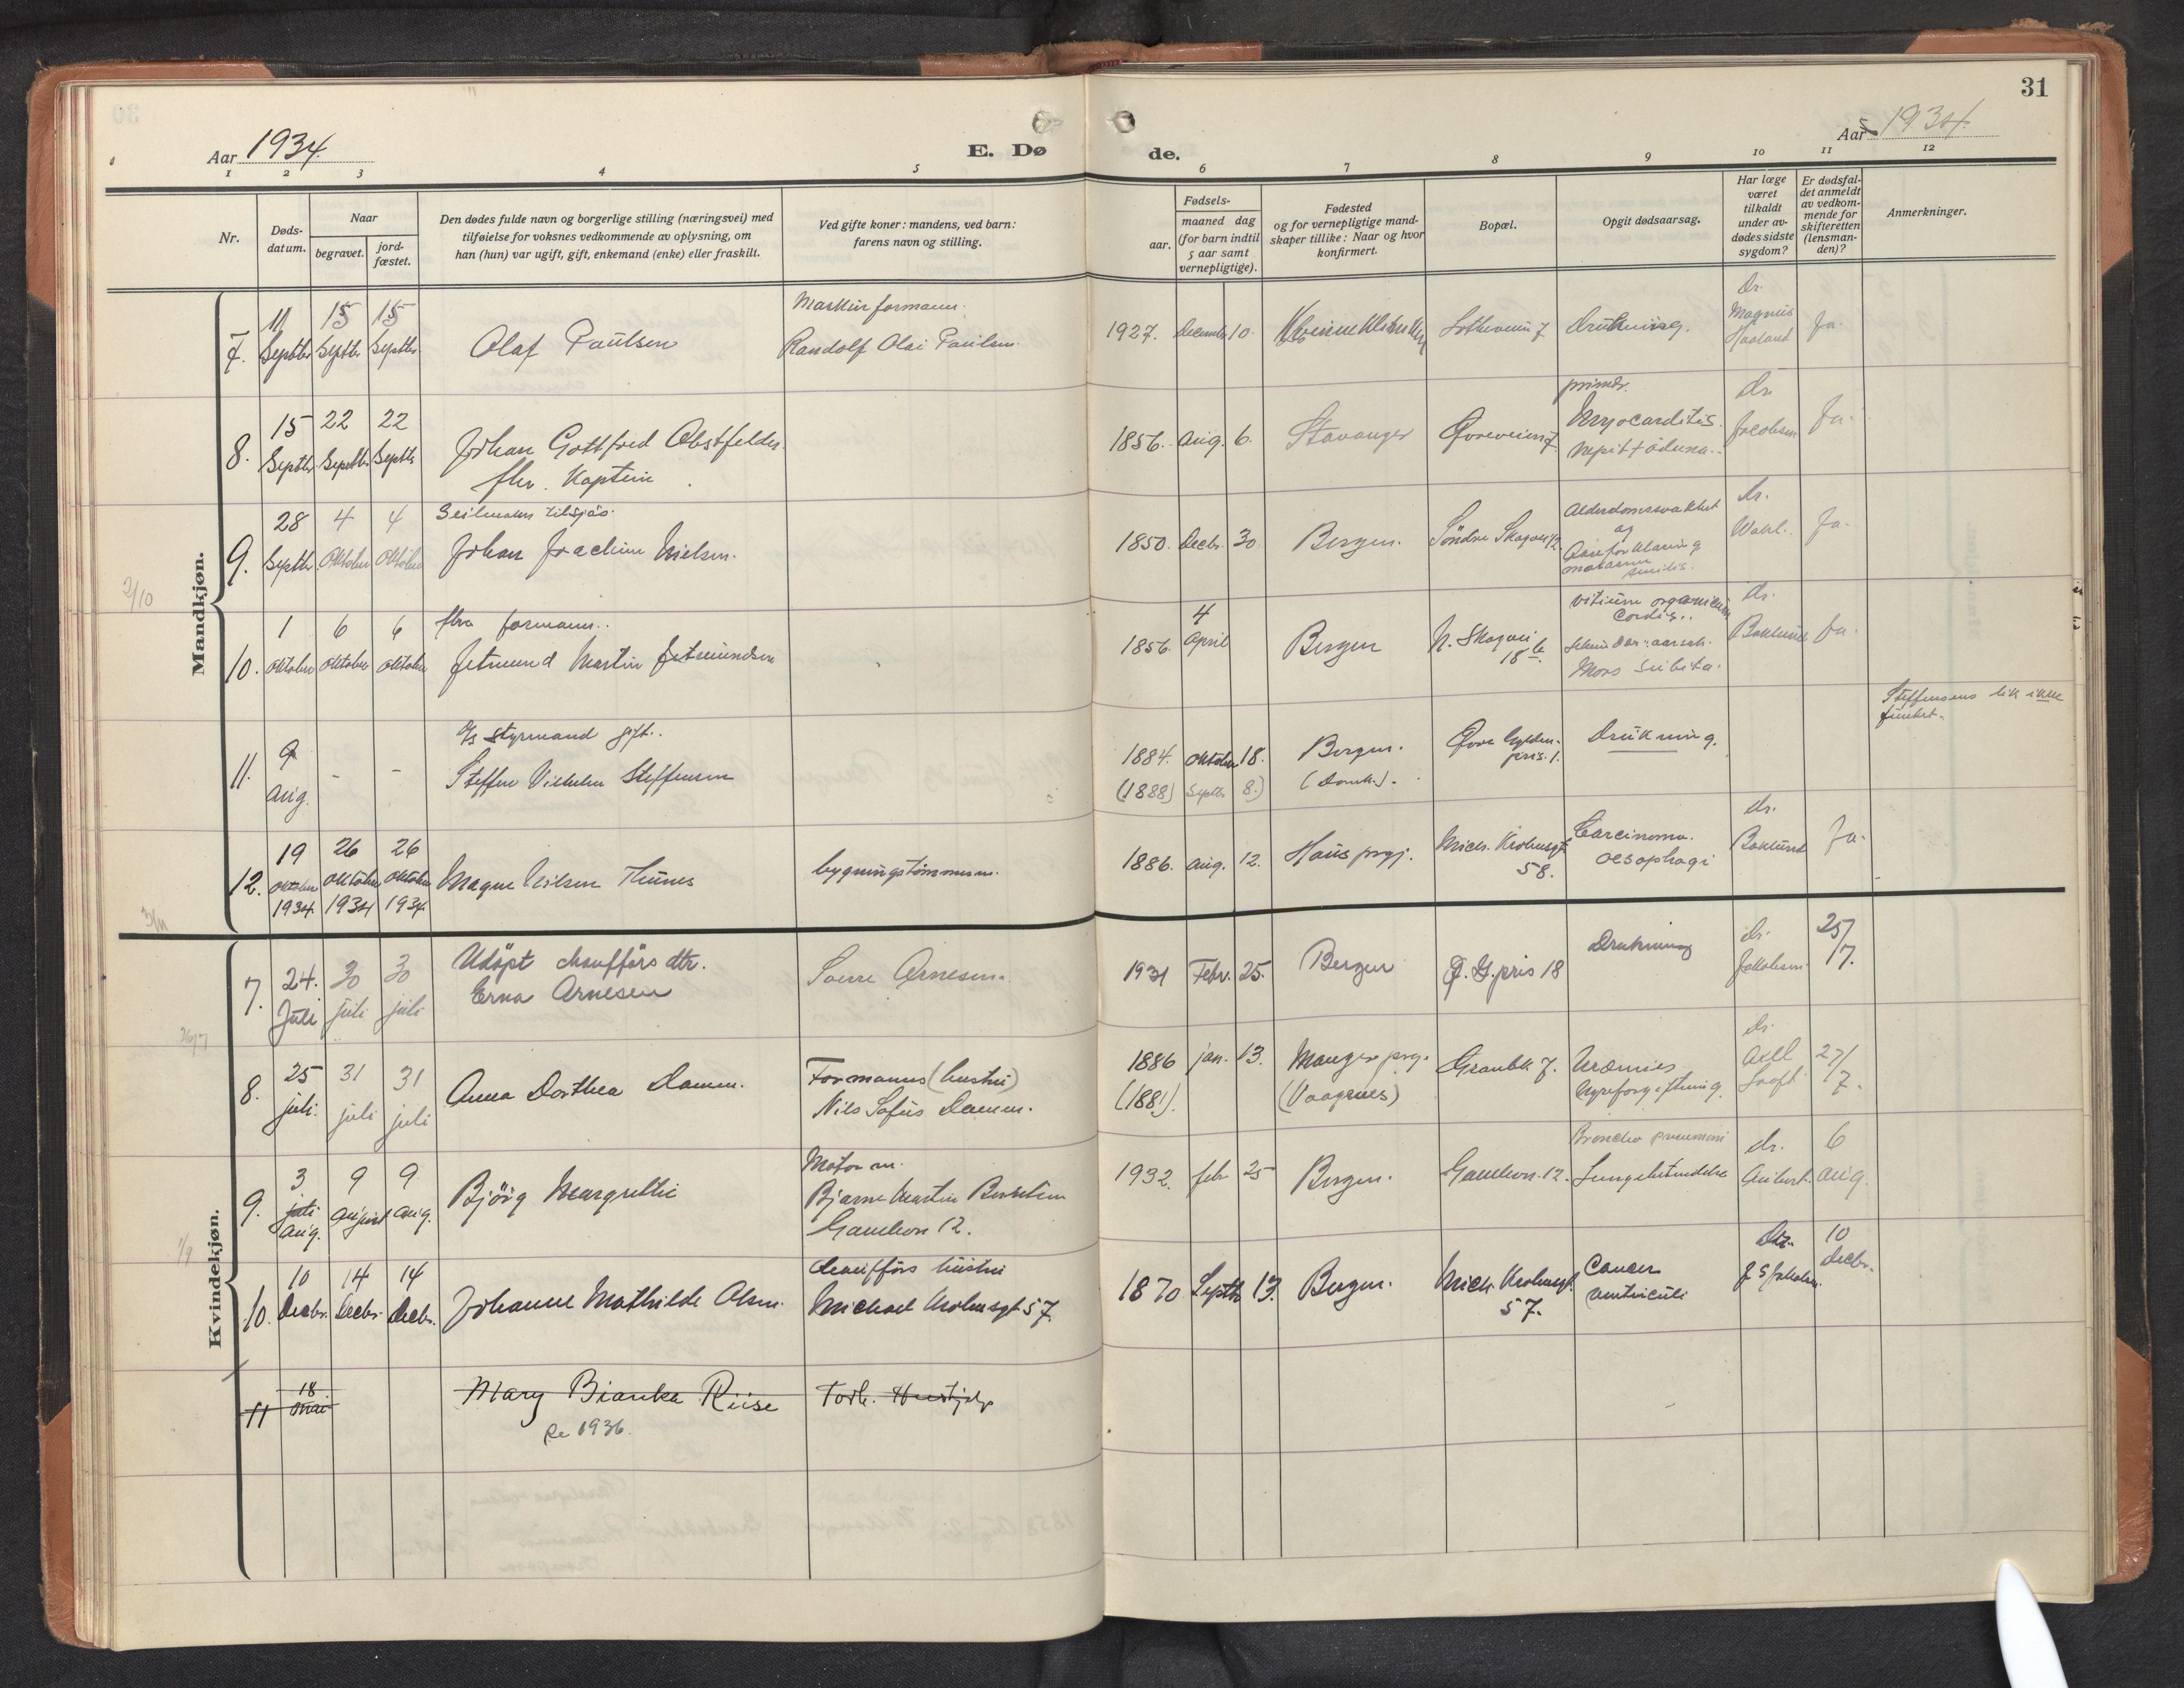 31
Aar 1934
E. Dø
de.
Aar 1934
1 2 3 4 5 6 7 8 9 10 11 12
Nr.
Døds-
datum.
Naar
begravet.
jord-
fæstet.
Den dødes fulde navn og borgerlige stilling (næringsvei) med
tilføielse for voksnes vedkommende av oplysning, om
han (hun) var ugift, gift, enkemand (enke) eller fraskilt.
Ved gifte koner: mandens, ved barn:
farens navn og stilling.
Fødsels-
aar.
maaned dag
(for barn indtil
5 aar samt
vernepligtige).
Fødested
og for vernepligtige mand-
skaper tillike: Naar og hvor
konfirmert.
Bopæl.
Opgit dødsaarsag.
Har læge
været
tilkaldt
under av-
dødes sidste
sygdom?
Er dødsfal-
det anmeldt
av vedkom-
mende for
skifteretten
(lensman-
den)?
Anmerkninger.
Mandkjøn.
7. 11 Septbr 15 Septbr 15 Septbr
Olaf Paulsen
Maskinformann.
Randolf Olai Paulsen
1927. December 10.
Drukning.
Dr.
Magnus
Haaland
Ja
8. 15 Septbr 22 Septbr 22 Septbr
Johan Gottfred Obstfelder
fhv. Kaptein
1856. Aug. 6. Stavanger Øvreveien 7
Myocarditis.
dr.
Jacobsen
Ja.
2/10
9. 28 Septbr 4 Oktober 4 Oktober
Seilmaker tilsjøs.
Johan Joachim Nielsen.
1850. Decbr. 30. Bergen. Søndre Skogvei 12
Alderdomssvakhet
og
Aareforkalkning
senilis.
dr.
Wahl.
Ja.
10. 1 Oktober 6 Oktober 6 Oktober
fhv formann..
Jetmund Martin Jetmundsen
1856. 4 April Bergen N. Skogvei
18 b.
vitium organicum
Cordis..
Mors subita.
dr.
Baklund
Ja.
11. 9 Aug. - -
D/s styrmand gift..
Steffen Vilhelm Steffensen
1884. Oktober 18. Bergen.
(1888) Septbr 8.) (Domk.).
Øvre Gylden-
pris. 1.
Drukning.
Steffensens lik ikke
funnet.
12. 19 Oktober 1934. 26 Oktober 1934 26 Oktober 1934.
Magne Nilsen Thunes
bygningstømmerm.
1886. Aug. 12. Haus prgj. Mich. Krohnsgt
58.
Carcinoma.
oesophagi
dr.
Baklund
Ja.
3/11
Kvindekjøn.
7. 24. Juli 30 juli 30 juli
Adopt chaufførs dtr.
Erna Arnesen
Sverre Arnesen.
1931 Febr. 25. Bergen Ø. G.pris 18
Drukning
dr.
Jakobsen
25/
7.
26/7
8. 25 juli. 31 juli 31 juli
Anna Dorthea Damm.
Formanns (hustru)
Nils Sofus Damm.
1886 jan. 13. Manger prgj.
(1881). (Vaagenes)
Granbk 7. Uræmies
Nyreforgiftning.
dr.
Axel
Looft
27/
7.
9. 3 juli Aug. 9 August 9 Aug.
Bjørg Margrethe
Motorm.
Bjarne Martin
Gamleon 12.
1932. febr 25 Bergen. Gamleon. 12.
Broncho pneumoni
Lungebetendelse
dr.
Aubert.
6
Aug.
1/9
10. 10 Decbr. 14 Decbr 14 Decbr.
Johanne Mathilde Olsen.
chaufførs hustru
Michael Krohnsgt 57
1870 Septbr 13. Bergen. Mich. Krohnsgt.
57.
Cancer
ventriculi
Dr.
J S Jakobsen.
10
Decbr.
11 18. mai
Mary Bianka Riise Torb.
Se 1936.